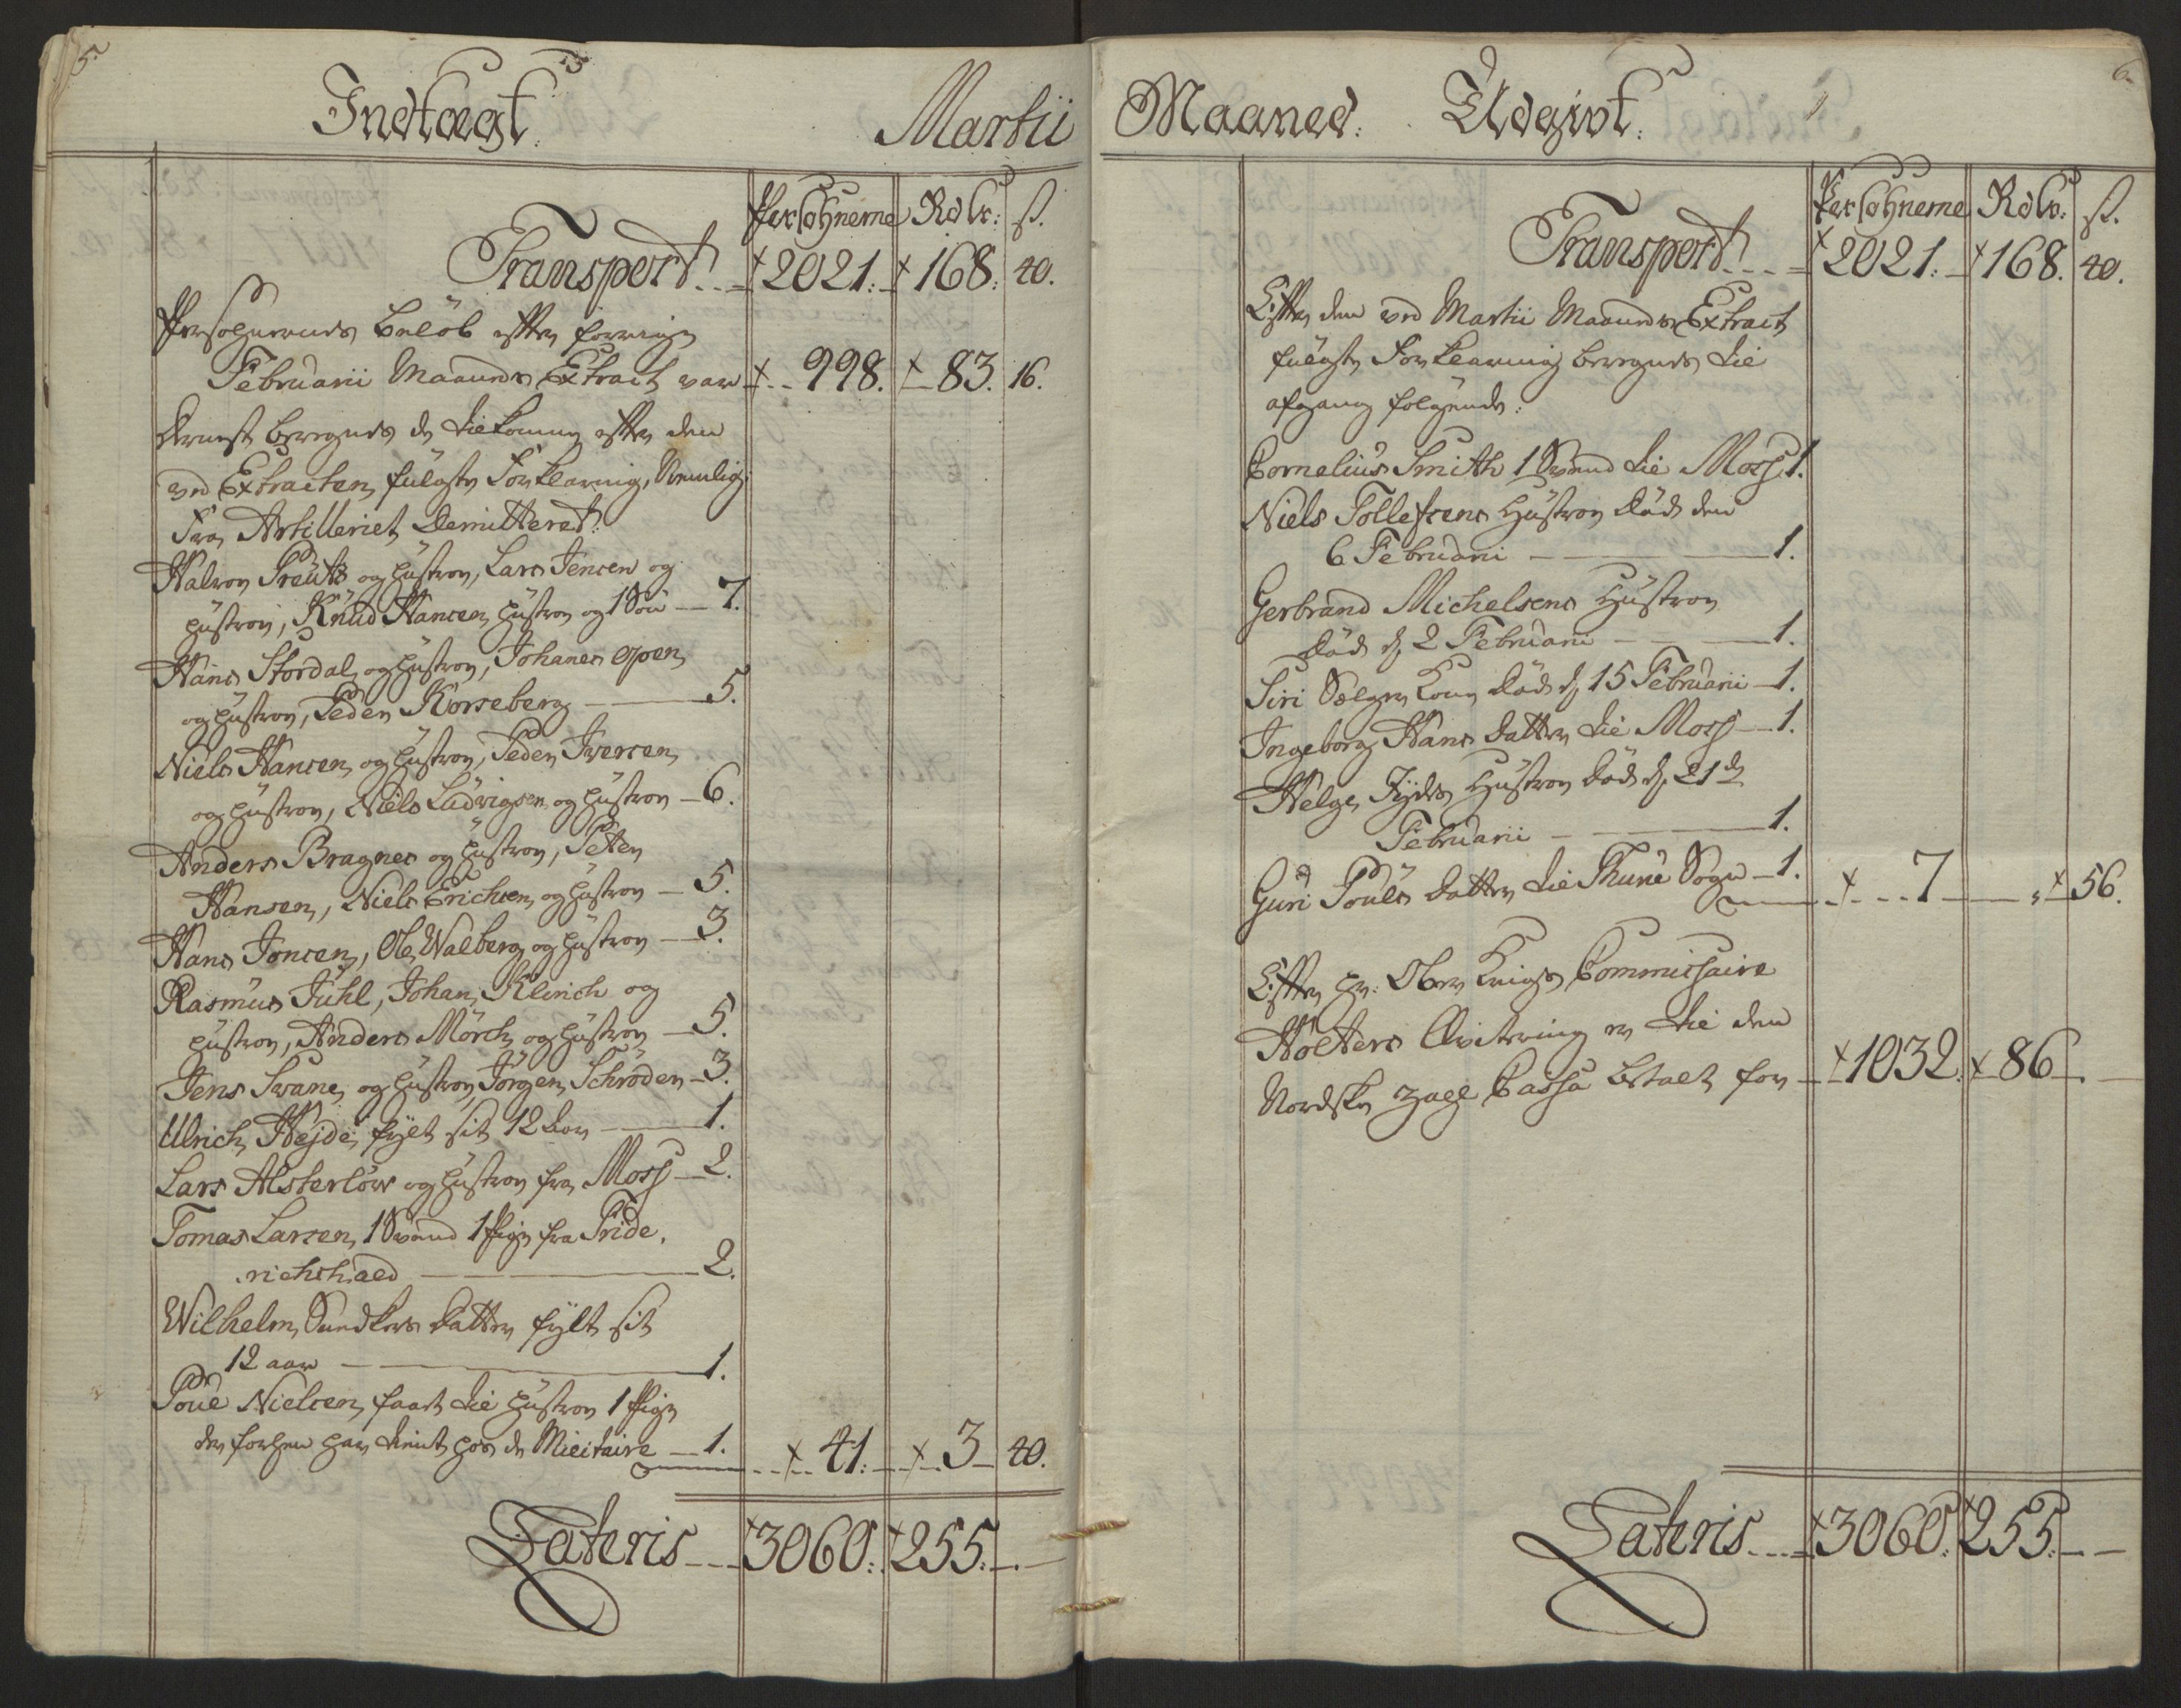 5.
Indtægt. Martii
Persohnerne Rdlr: ß.
Transport 2021. 168. 40.
Persohnernes beløb efter forrige
Februarii Maaneds Extract var 998. 83. 16.
Dernest beregnes de tilkomne efter den
ved Extracten fulgte Forklaring, Nemlig:
Fra Artilleriet Demitteret:
Halvor og hustrou, Lars Jensen og
hustrou, Knud Hansen hustrou og 1 Søn 7.
Hans Stordal og hustrou, Johanes
og hustrou, Peder Korseberg 5.
Niels Hansen og hustrou, Peder Iversen
og hustrou, Niels Ludvigsen og hustrou 6.
Anders Bragnes og hustrou, Peter
Hansen, Niels Erichsen og hustrou 5.
Hans Jonsen, Ole Walberg og hustrou 3.
Rasmus Juhl, Johan Klinch og
hustrou, Anders Mörch og hustrou 5.
Jens Svane og hustrou, Jørgen Schrøder 3.
Ulrich Hejde fylt sit 12 aar 1.
Lars Alsterløw og hustrou fra Moss 2.
Tomas Larsen, 1 Svend 1 Pige fra Fride,
richshald 2.
Wilhelm datter fylt sit
12 aar 1.
Poul Nielsen faaet til hustrou 1 Pige
der forhen har tient hos de Militaire 1. 41. 3 40.
Lateris 3060. 255.
6.
Maaned. Udgivt.
Persohnerne Rdlr. ß.
Transport 2021. 168. 40.
Efter den ved Martii Maaneds Extract
fulgte Forklaring beregnes til
afgang følgende:
Cornelius Smith 1 Svend til Moss 1.
Niels Tollefsens Hustrou Død den
6 Februarii 1.
Gerbrand Michelsens Hustrou
Død d. 2 Februarii 1.
Siri Kone Død d. 15 Februarii 1.
Ingeborg Hans datter til Moss 1.
Helge Jyde Hustrou Død d. 21de
Februarii 1.
Guri Pouls datter til Thune Sogn 1. 7 56.
Efter hr: Ober Krigs Commissaire
Holters Qvitering er til den
Nordske Zahl Cassa betalt for 1032. 86
Lateris 3060. 255.